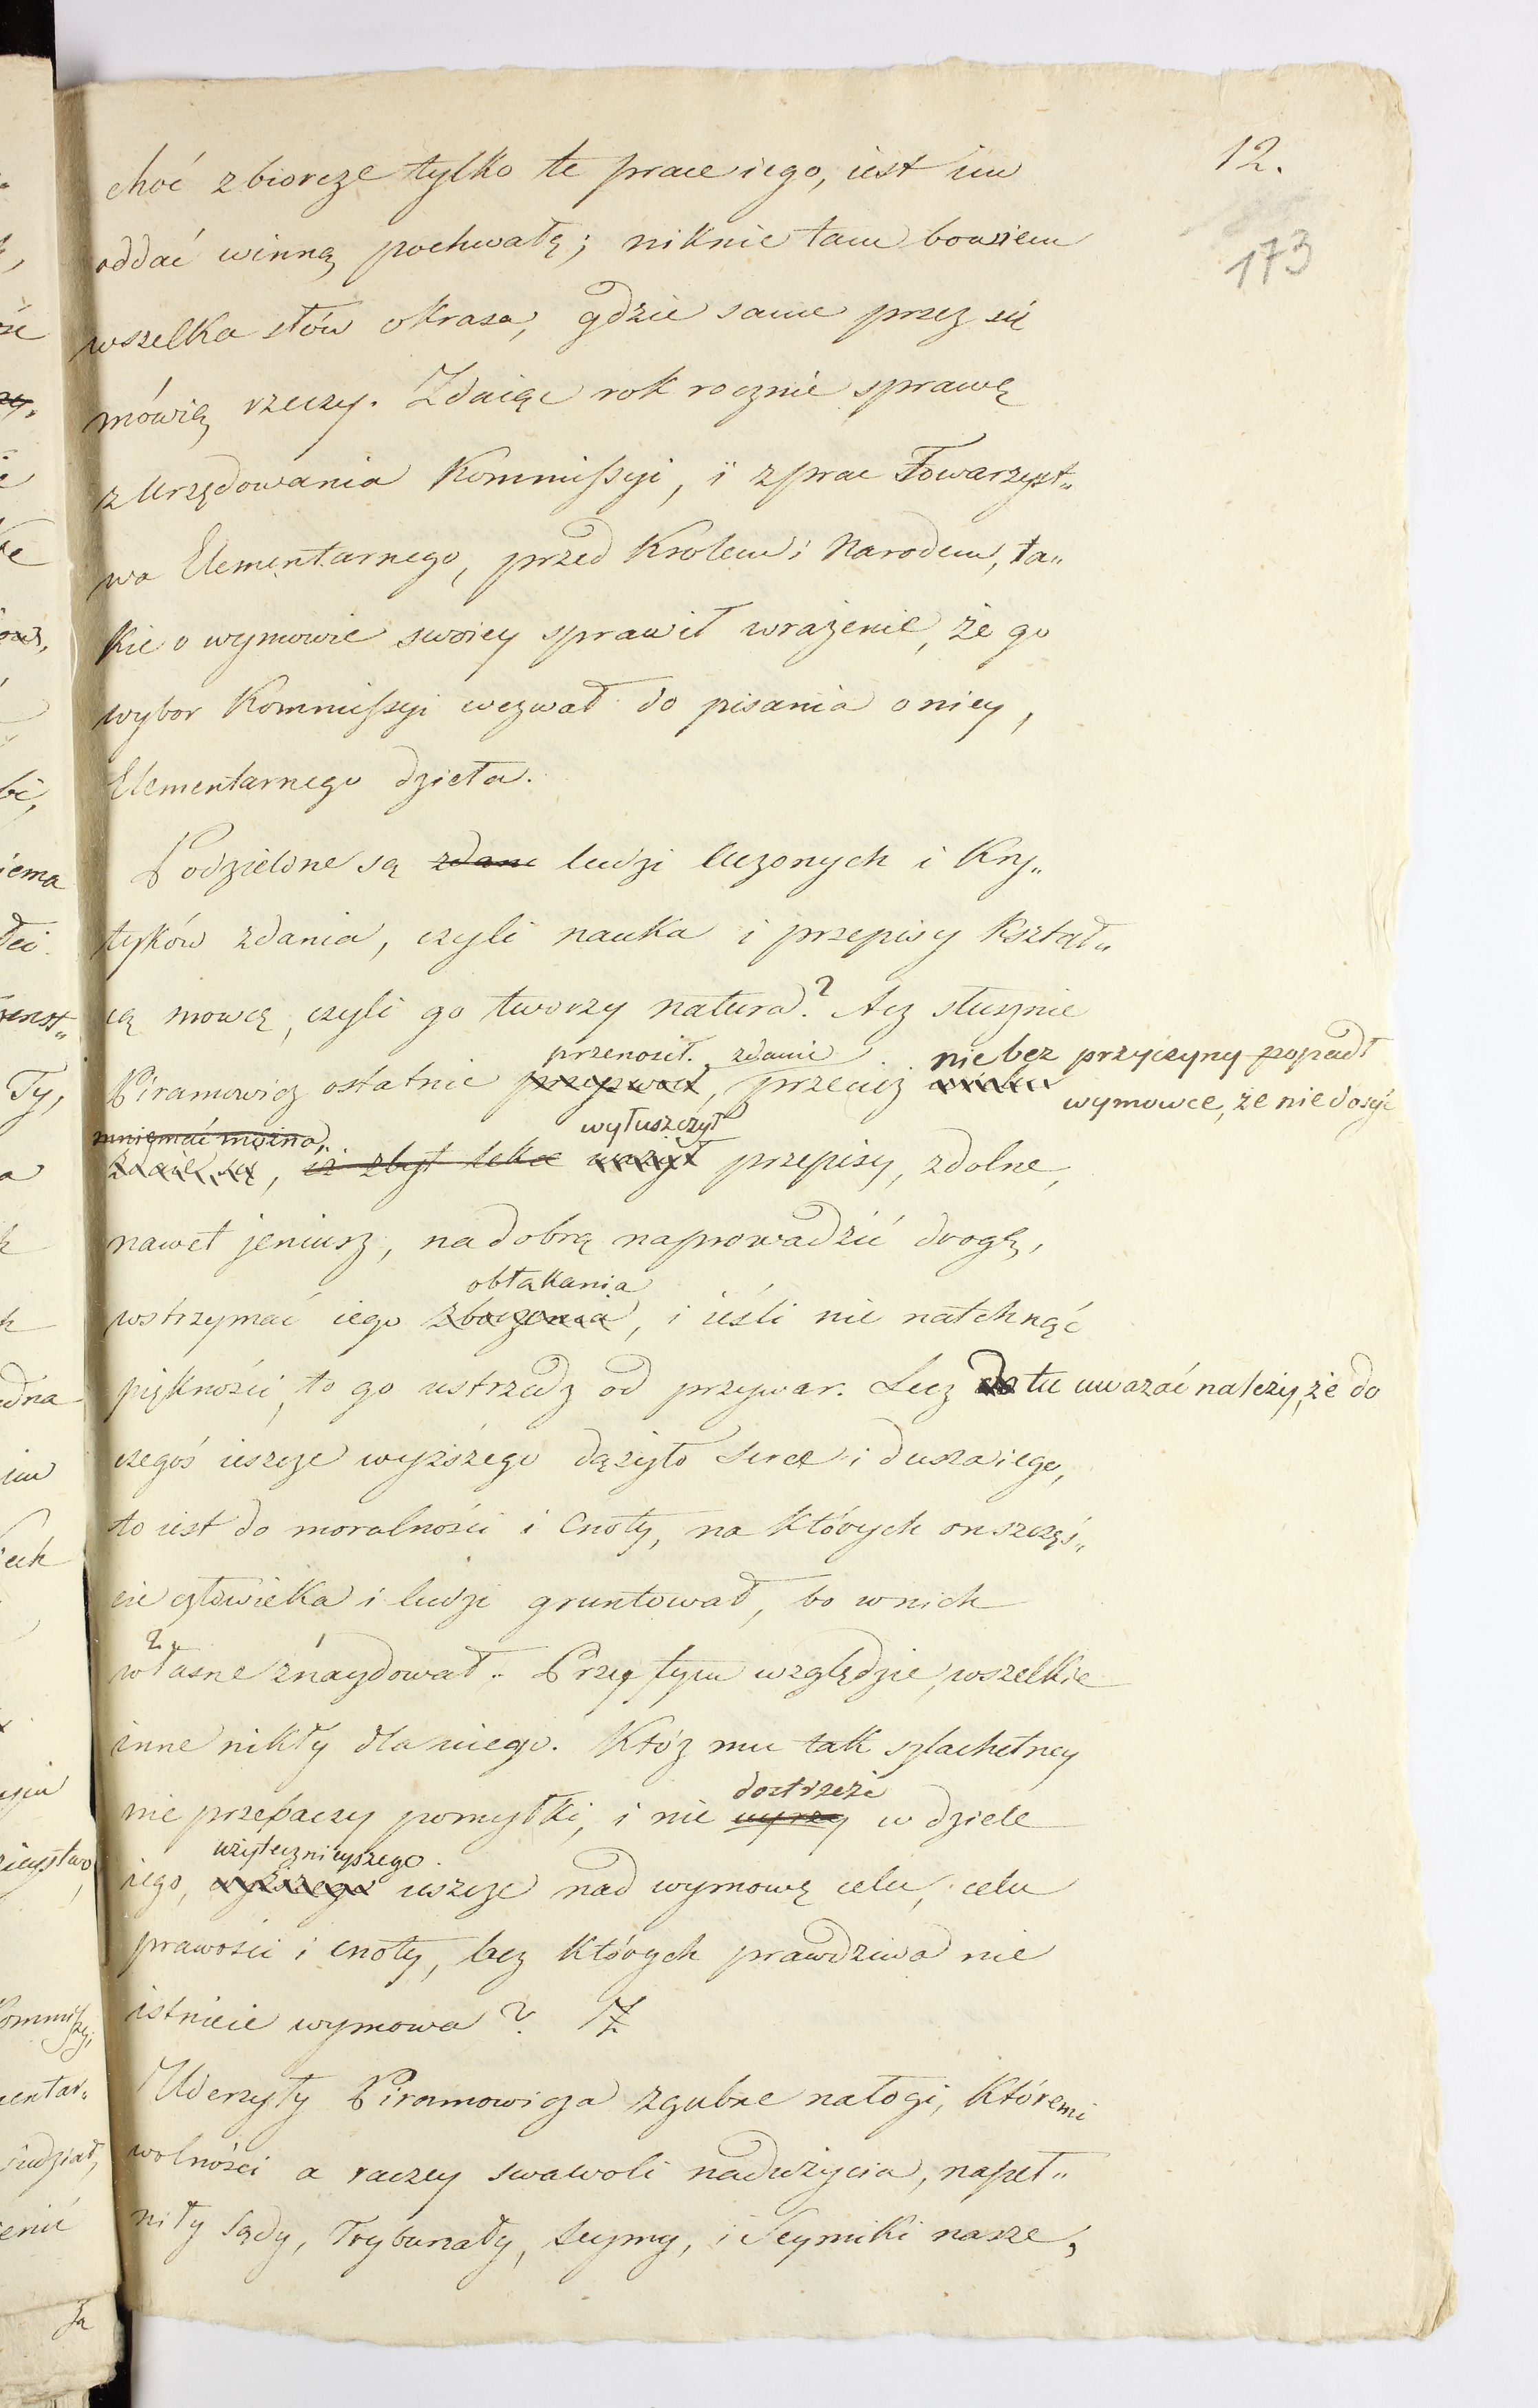 12.
173
choć zbiorcze tylko te prace iego, iest im
oddać winną pochwałę; niknie tam bowiem
wszelka słów okrasa, gdzie same przez się
mówią rzeczy. Zdaiąc rok rocznie sprawę
z Urzędowania Kommissyi, i z prac Towarzyst„
wa Elementarnego, przed Krolem i Narodem, ta„
kie o wymowie swoiey sprawił wrażenie, że go
wybor Kommissyi wezwał do pisania o niey,
Elementarnego dzieła.
Podzielone są zdane ludzi Uczonych i Kry„
tyków zdania, czyli nauka i przepisy kształ„
cą mowcę, czyli go tworzy natura? Acz słusznie
przenosił. zdanie nie bez przyczyny popadł
Piramowicz ostatnie, przecież
wymowce, że nie dosyć
mniemać można, wyłuszczył
zdaie się, iż zbyt lekce ważył przepisy, zdolne,
nawet jeniusz, na dobrą naprowadzić drogę,
obłąkania
wstrzymać iego zboczenia, i ieśli nie natchnąć
pięknośći, to go ustrzedz od przywar. Lecz tu uważać należy, że do
czegoś ieszcze wyższego dążyło serce i dusza iego,
to iest do moralnośći i Cnoty, na których on szczęś„
cie człowieka i ludzi gruntował, bo w nich
własne znaydował. Przy tym względzie, wszelkie
inne nikły dla niego. Któż mu tak szlachetney
dostrzeże
nie przebaczy pomyłki, i nie uyrzy w dziele
użytecznieyszego
iego, wyższego ieszcze nad wymowę celu, celu
prawości i cnoty, bez których prawdziwa nie
istnieie wymowa?
Uderzyły Piramowicza zgubne nałogi, któremi
wolnośći a raczey swawoli nadużycia, napeł„
niły Sądy, Trybunały, Seymy, i Seymiki nasze,